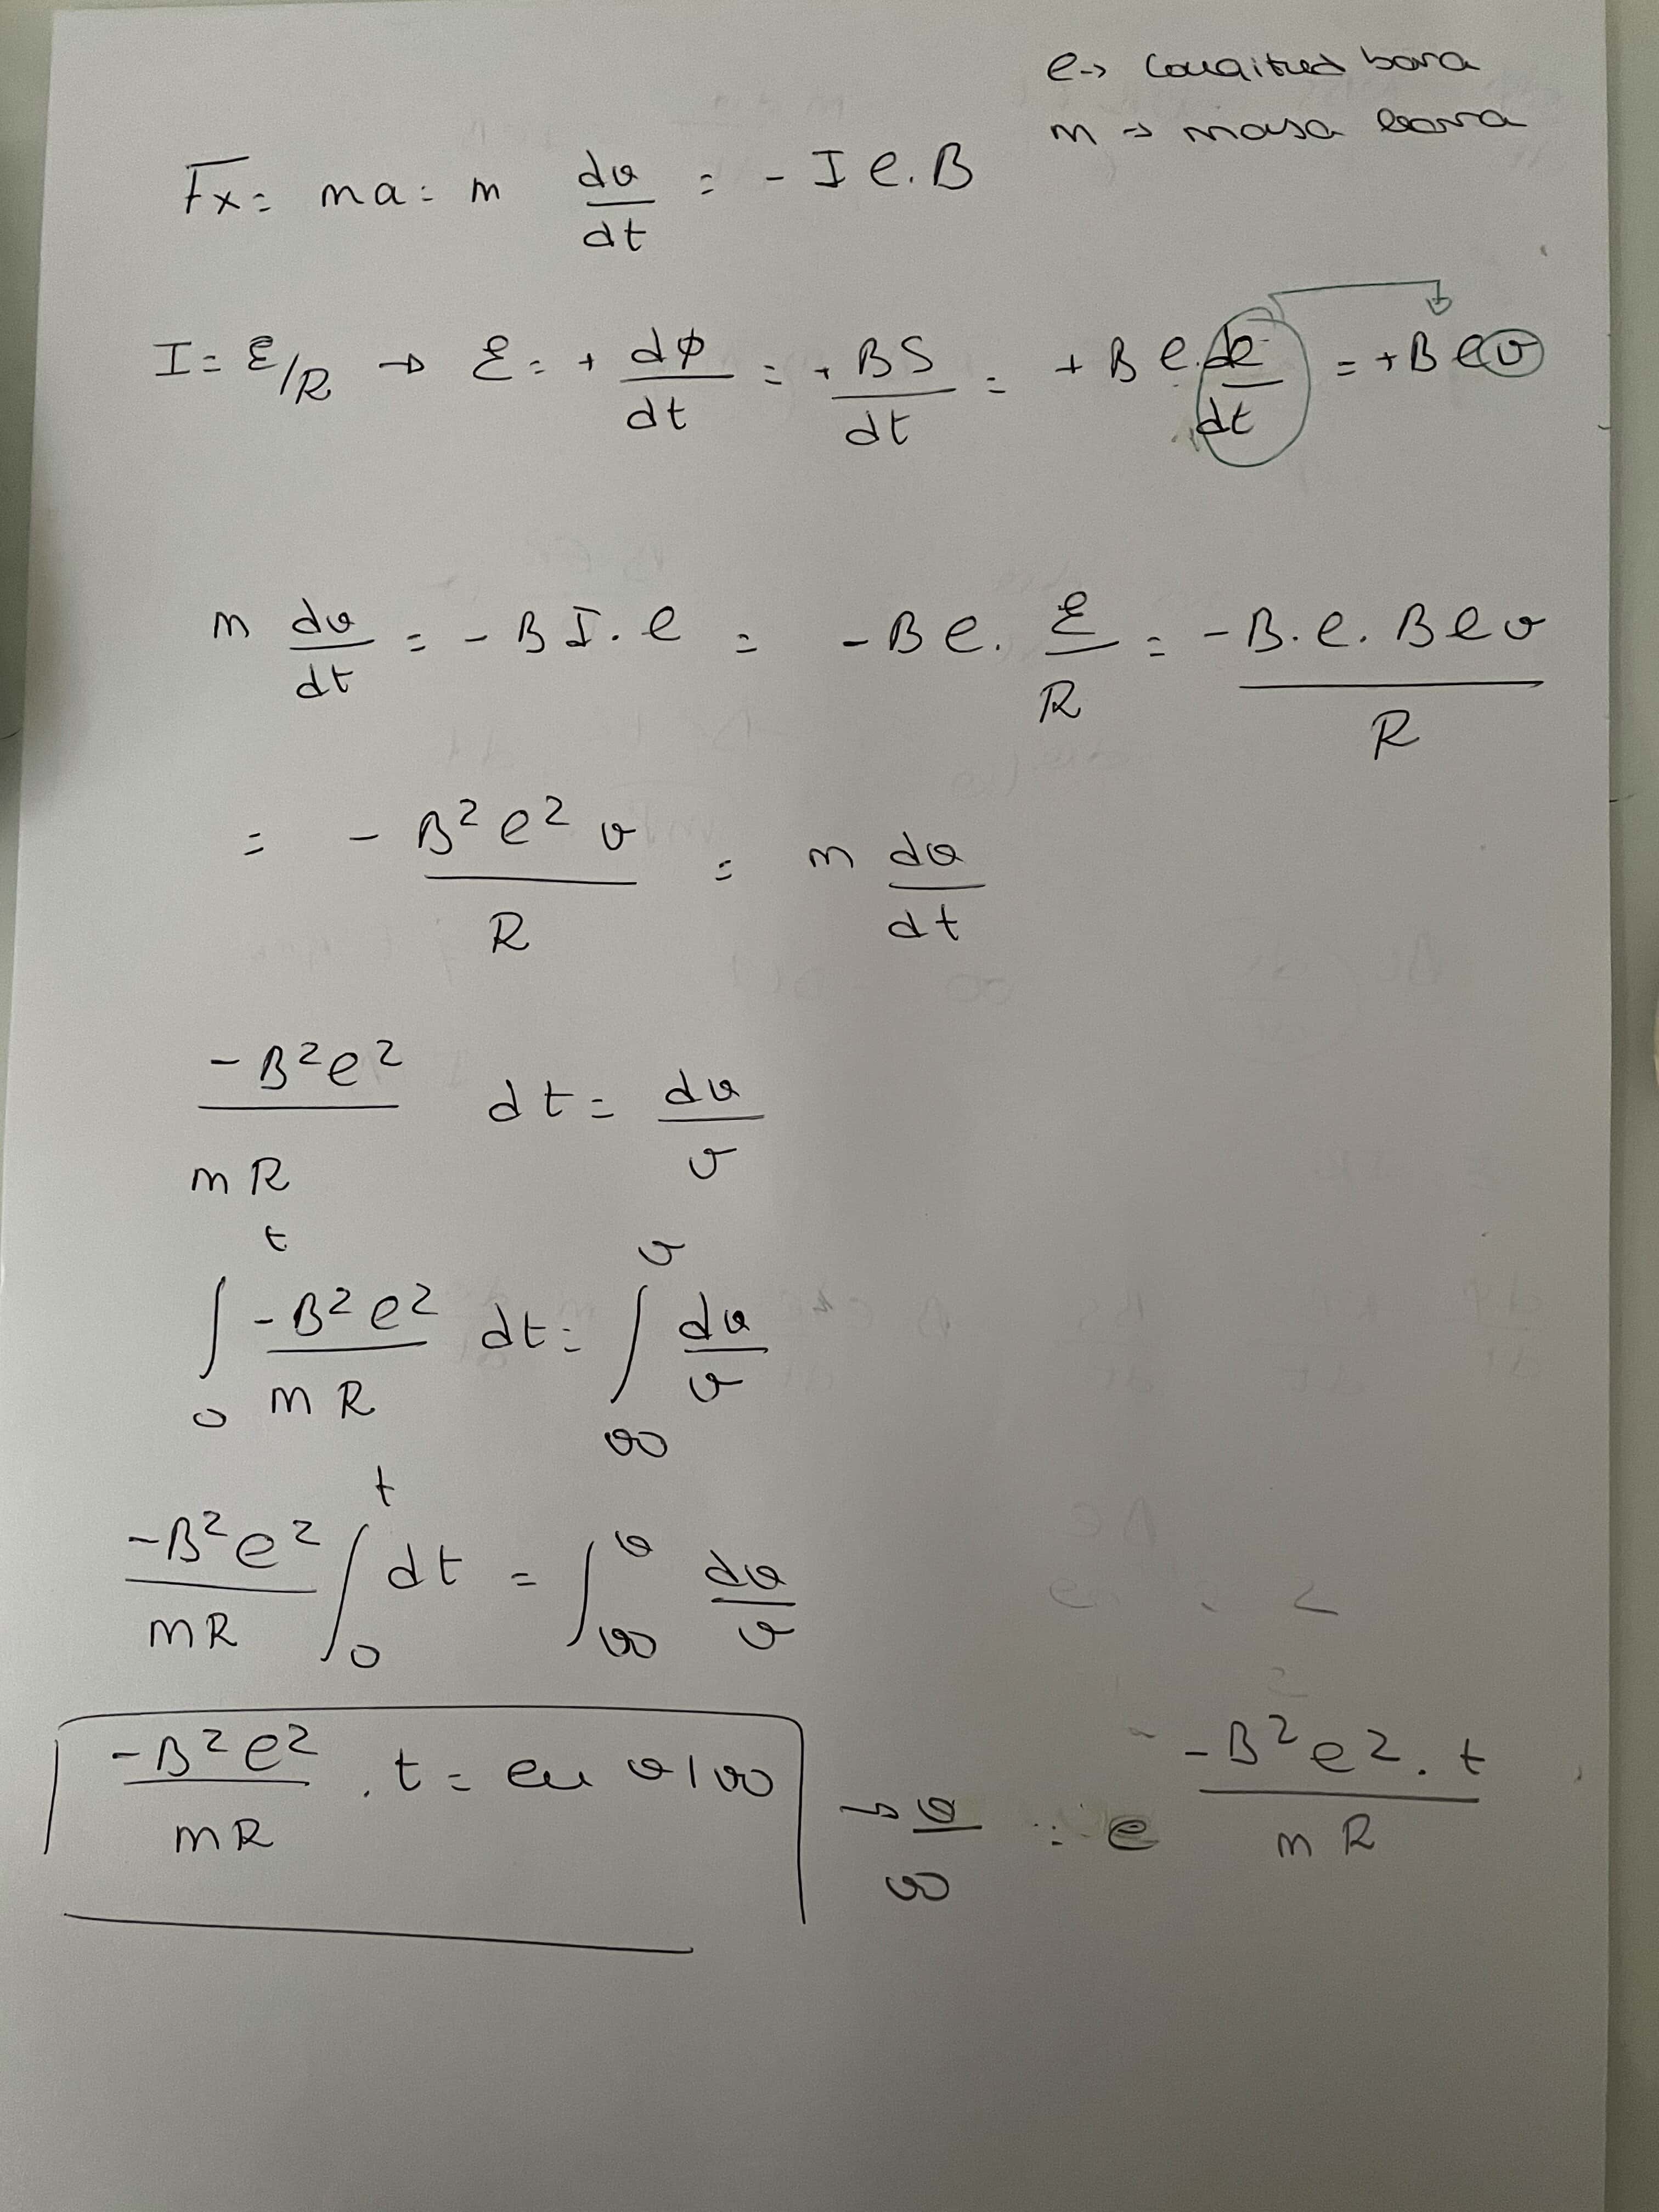 l → longitud barra
m → masa barra
Fx = ma = m dv/dt = - I l . B
I = ℰ/R → ℰ = + dϕ/dt = + BS/dt = + B l . de/dt = + B l v
m dv/dt = - B I . l = - B l . ℰ/R = - B . l . B l v / R
= - B² l² v / R = m dv/dt
- B² l² / mR dt = dv/v
∫₀ᵗ - B² l² / mR dt = ∫ᵥ₀ᵛ dv/v
- B² l² / mR ∫₀ᵗ dt = ∫ᵥ₀ᵛ dv/v
- B² l² / mR . t = ln v/v₀ → v/v₀ = e^(- B² l² . t / mR)